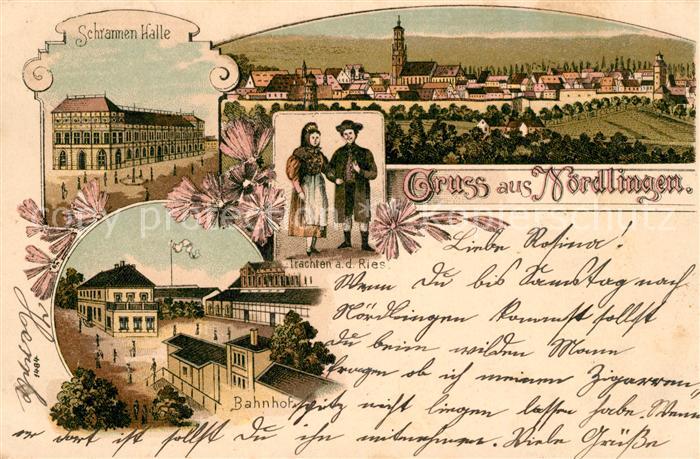 Schrannen Halle
Gruss aus Nördlingen.
Trachten a. d. Ries.
Bahnhof
1484
Liebe Rosina!
Wenn Du bis Samstag nach
Nördlingen kommst sollst
Du beim wilden Mann
fragen ob ich meinen Zigarren
spitz nicht liegen lassen habe. Wenn
er dort ist sollst Du ihn mitnehmen. Viele Grüße